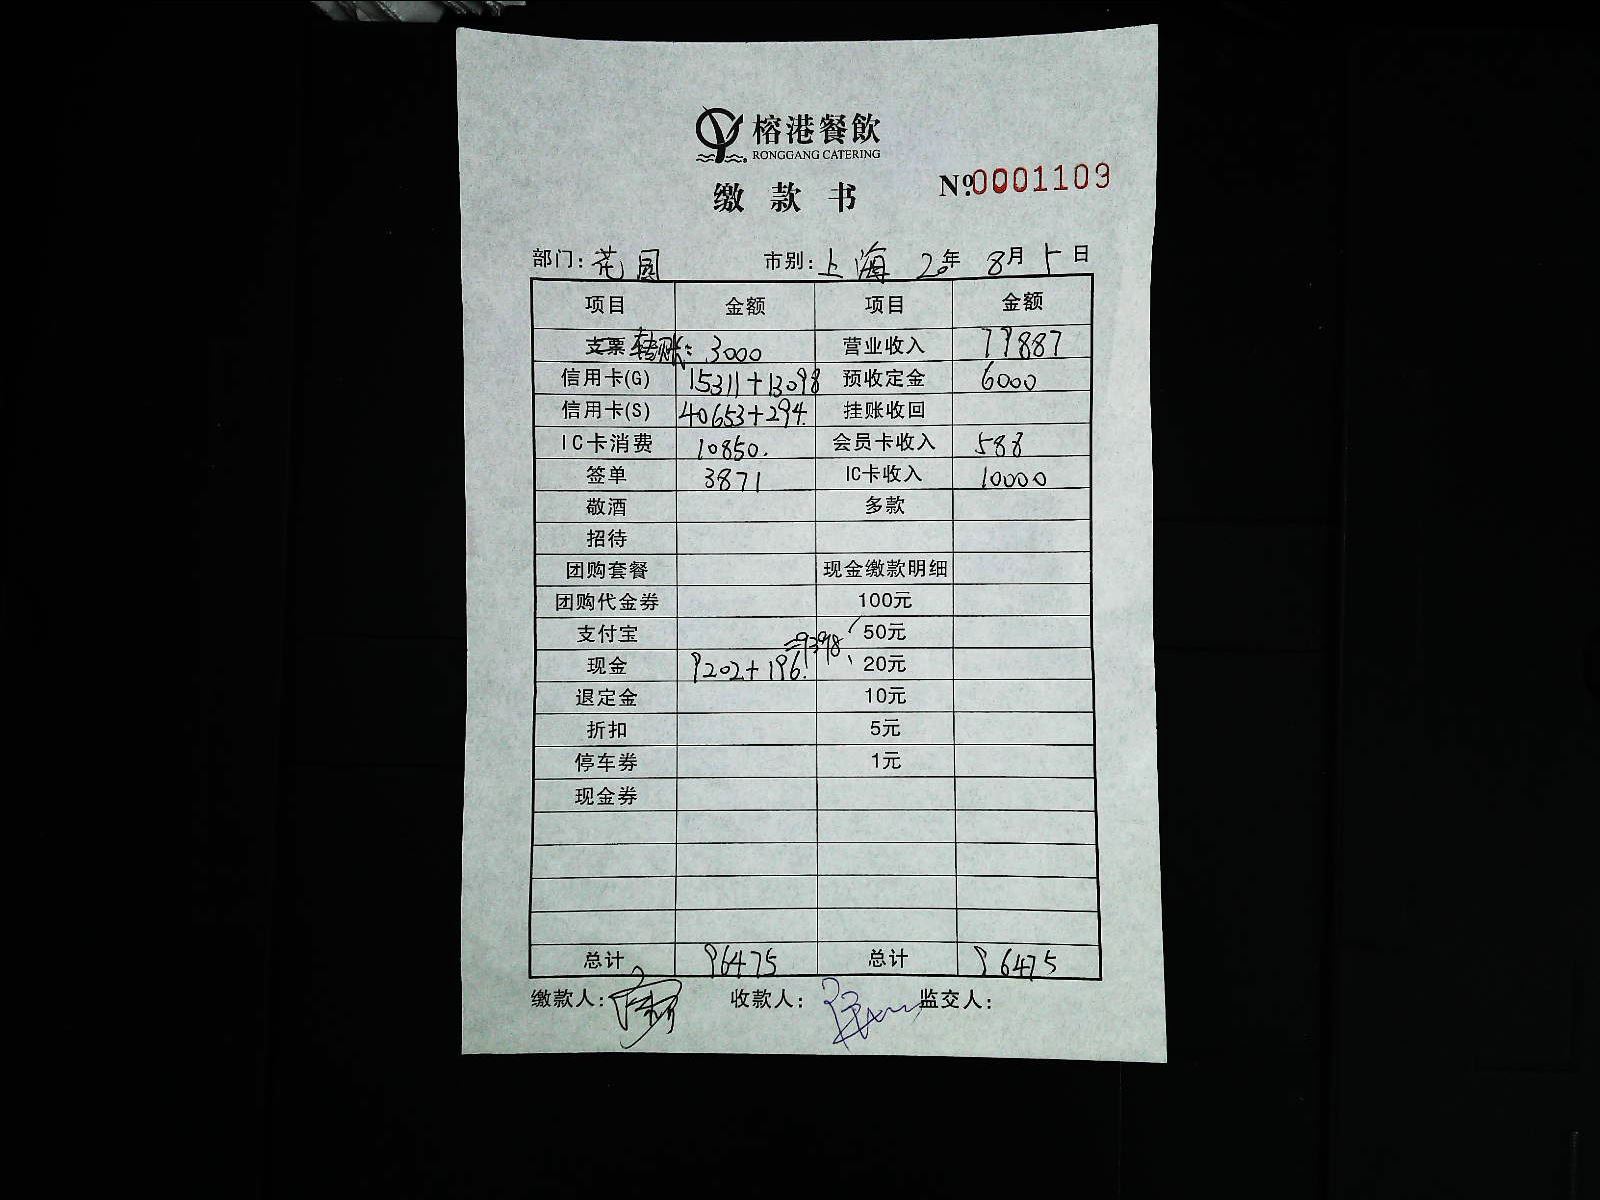 榕港餐飲
RONGGANG CATERING
缴款书
No.0001109
部门：花园 市别：上海 20年 8月 5日
项目 金额 项目 金额
支票 转账： 3000 营业收入 79887
信用卡(G) 15311+13098 预收定金 6000
信用卡(S) 40653+294. 挂账收回
IC卡消费 10850. 会员卡收入 588
签单 3871 IC卡收入 10000
敬酒 多款
招待
团购套餐 现金缴款明细
团购代金券 100元
支付宝 50元
现金 9202+196. =9398 20元
退定金 10元
折扣 5元
停车券 1元
现金券
总计 96475 总计 96475
缴款人： 收款人： 监交人：